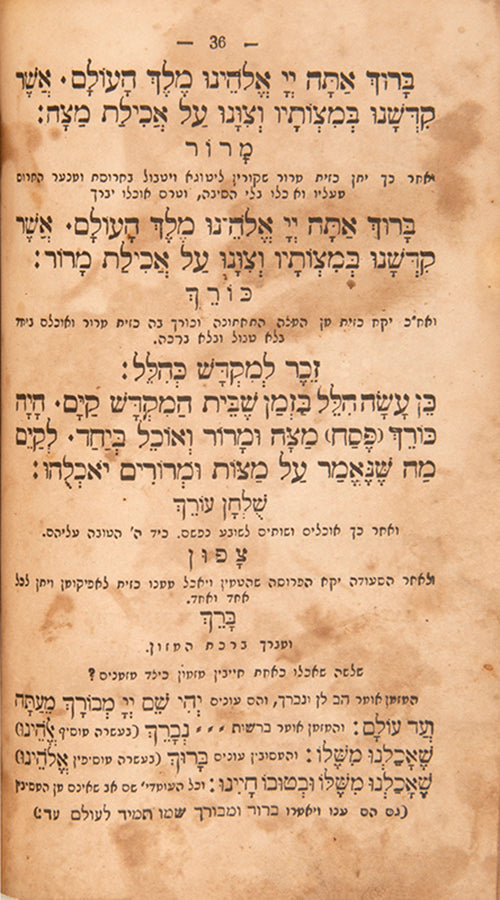 — 36 —
בָּרוּךְ אַתָּה יְיָ אֱלֹהֵינוּ מֶלֶךְ הָעוֹלָם. אֲשֶׁר
קִדְּשָׁנוּ בְּמִצְוֹתָיו וְצִוָּנוּ עַל אֲכִילַת מַצָּה:
מָרוֹר
ואחר כך יתן כזית מרור שקורין ליטוגא ויטבול בחרוסת ומנער החרוסת
מעליו ואוכלו בלי הסיבה, וטרם אוכלו יברך
בָּרוּךְ אַתָּה יְיָ אֱלֹהֵינוּ מֶלֶךְ הָעוֹלָם. אֲשֶׁר
קִדְּשָׁנוּ בְּמִצְוֹתָיו וְצִוָּנוּ עַל אֲכִילַת מָרוֹר:
כּוֹרֵךְ
ואח״כ יקח כזית מן המצה התחתונה וכורך בה כזית מרור ואוכלם ביחד
בלא טבול ובלא ברכה.
זֵכֶר לְמִקְדָּשׁ כְּהִלֵּל:
כֵּן עָשָׂה הִלֵּל בִּזְמַן שֶׁבֵּית הַמִּקְדָּשׁ קַיָּם. הָיָה
כּוֹרֵךְ (פֶּסַח) מַצָּה וּמָרוֹר וְאוֹכֵל בְּיַחַד. לְקַיֵּם
מַה שֶּׁנֶּאֱמַר עַל מַצּוֹת וּמְרוֹרִים יֹאכְלֻהוּ:
שֻׁלְחָן עוֹרֵךְ
ואחר כך אוכלים ושותים לשובע נפשם. כיד ה׳ הטובה עליהם.
צָפוּן
ולאחר הסעודה יקח הפרוסה שהטמין ויאכל ממנו כזית לאפיקומן ויתן לכל
אחד ואחד.
בָּרֵךְ
ומברך ברכת המזון.
שלשה שאכלו כאחת חייבין מזמון כילד מזמנים?
המזמן אומר הב לן ונברך, והם עונים יְהִי שֵׁם יְיָ מְבוֹרָךְ מֵעַתָּה
וְעַד עוֹלָם: והמזמן אומר ברשות ... נְבָרֵךְ (בעשרה מוסיף אֱלֹהֵינוּ)
שֶׁאָכַלְנוּ מִשֶּׁלּוֹ: והמסובין עונים בָּרוּךְ (בעשרה מוסיפין אֱלֹהֵינוּ)
שֶׁאָכַלְנוּ מִשֶּׁלּוֹ וּבְטוּבוֹ חָיִינוּ: וכל העומדי׳ שם אף שאינם מן המסובין
(גם הם ענו ויאמרו ברוך ומבורך שמו תמיד לעולם ועד:)